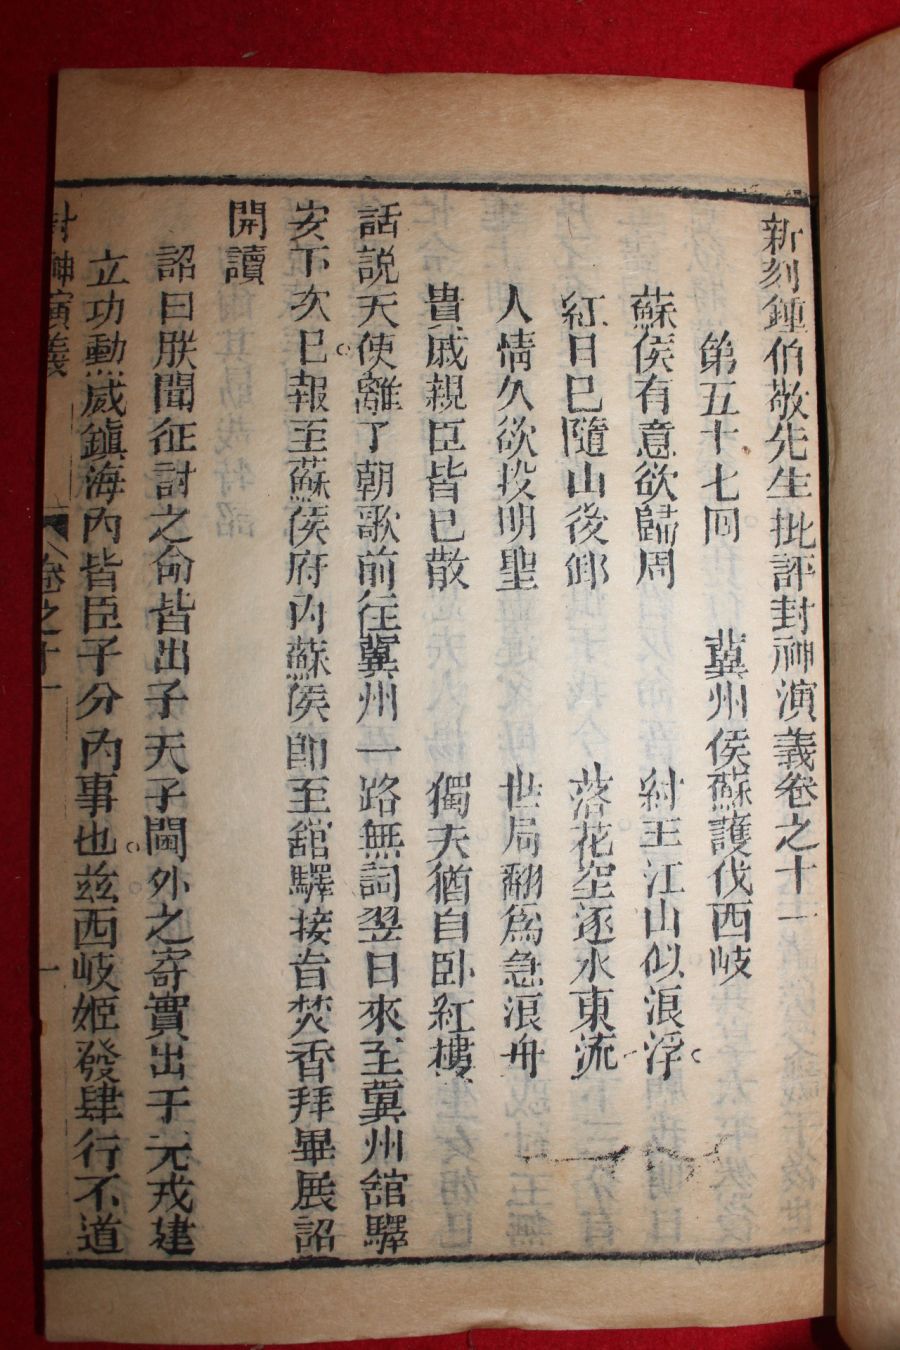 新刻鍾伯敬先生批評封神演義卷之十一
第五十七回 冀州侯蘇護伐西岐
蘇侯有意欲歸周 紂王江山似浪浮
紅日已隨山後卸 落花空逐水東流
人情久欲投明聖 世局翻爲急浪舟
貴戚親臣皆已散 獨夫猶自臥紅樓
話說天使離了朝歌前往冀州一路無詞翌日來至冀州舘驛
安下次已報至蘇侯府內蘇侯即至舘驛接旨焚香拜畢展詔
開讀
詔曰朕聞征討之命皆出于天子閫外之寄實出于元戎建
立功勳威鎮海內皆臣子分內事也兹西岐姬發肆行不道
封神演義 卷之十一 一